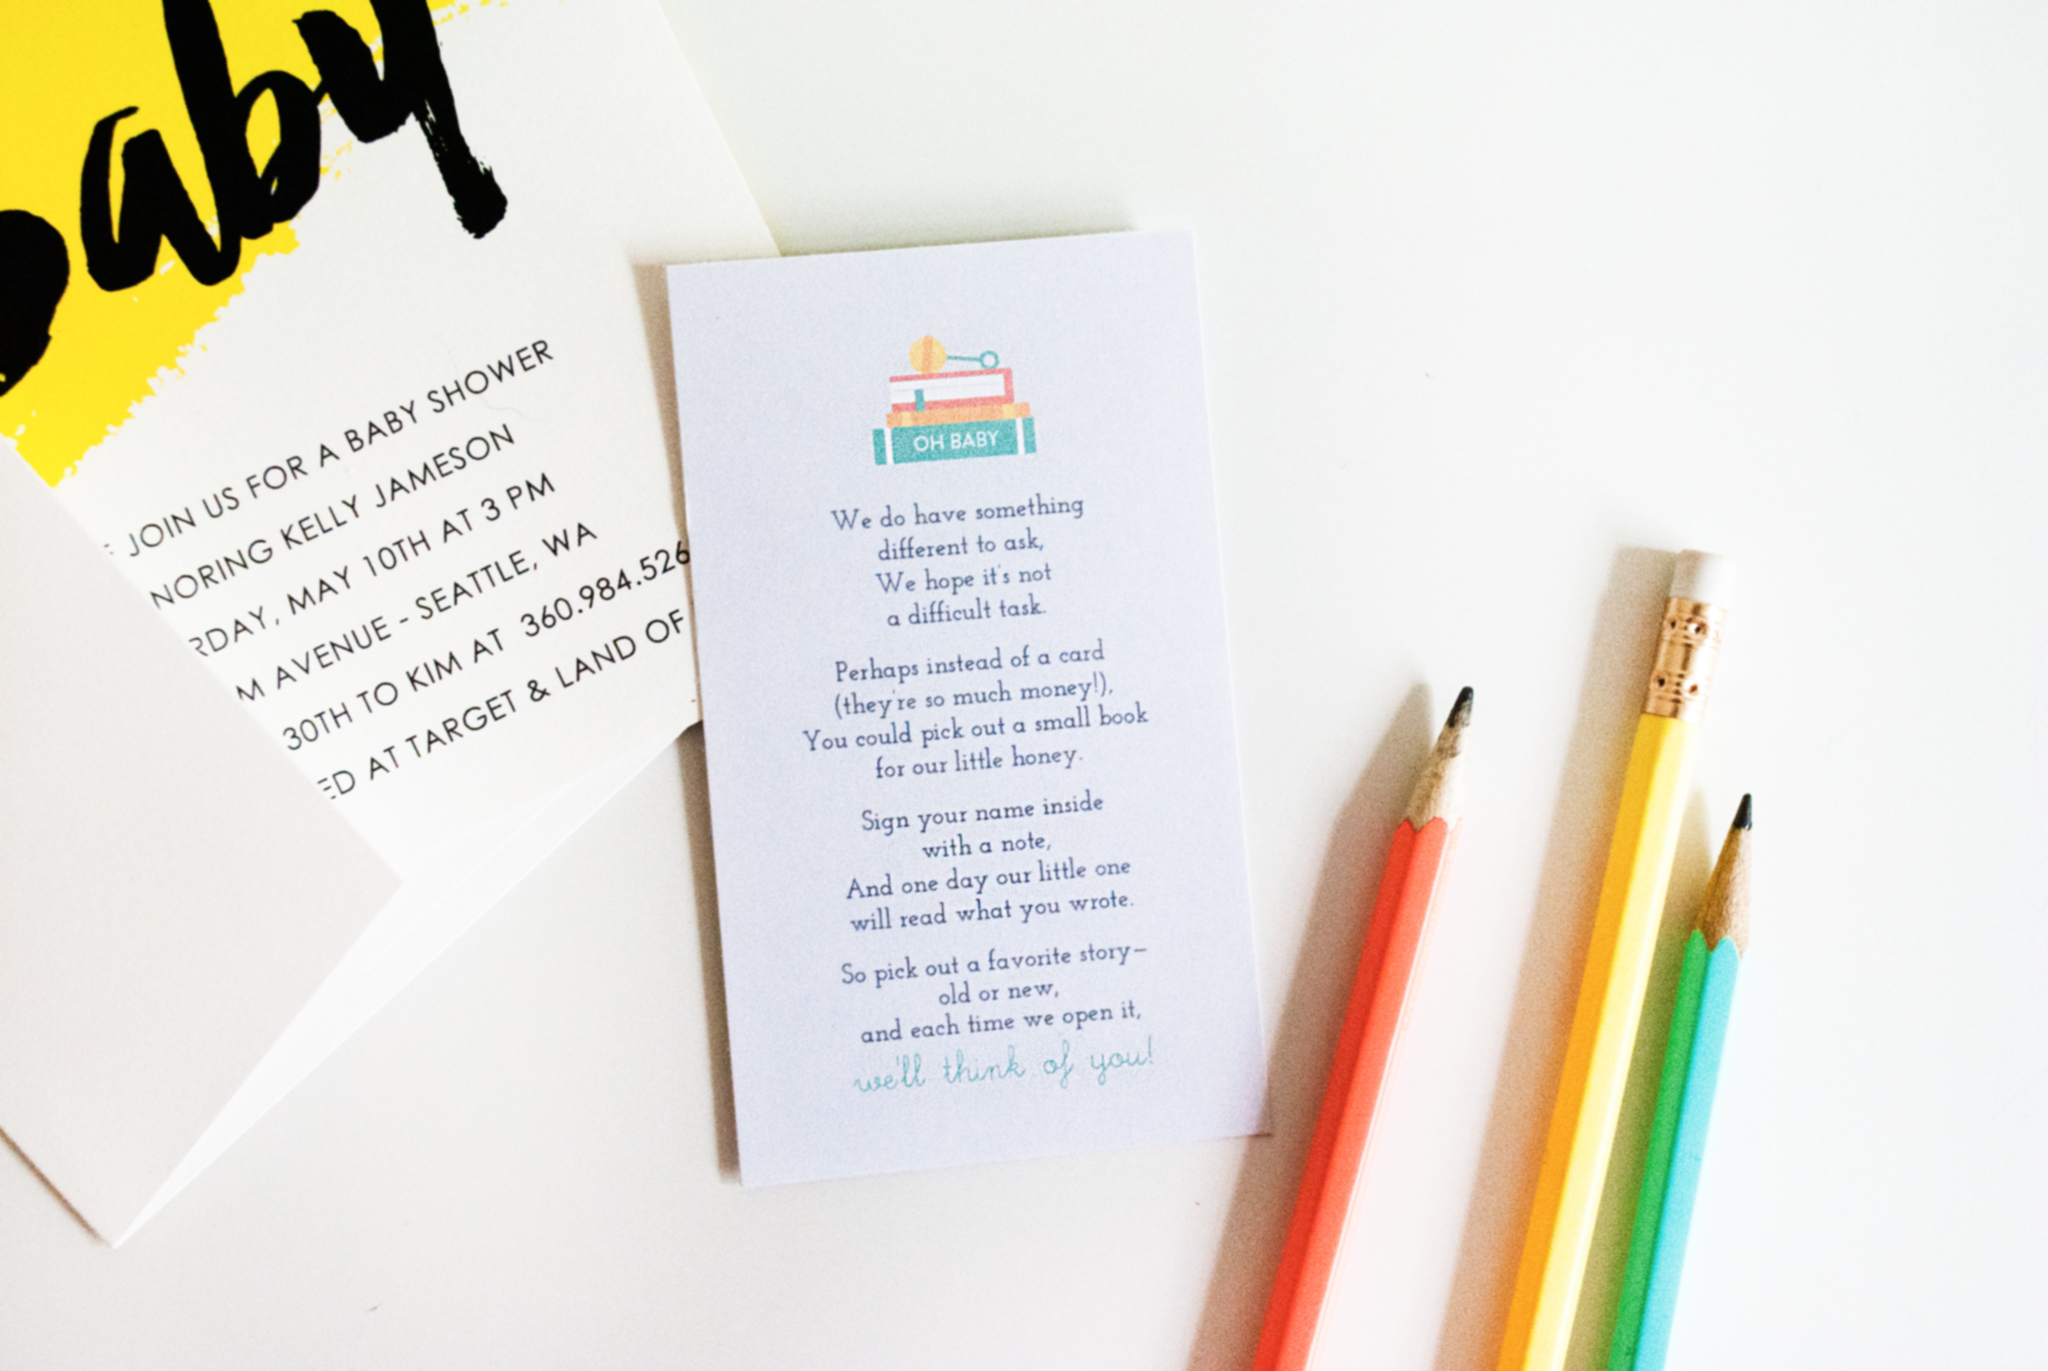 baby
JOIN US FOR A BABY SHOWER
NORING KELLY JAMESON
RDAY, MAY 10TH AT 3 PM
M AVENUE - SEATTLE, WA
30TH TO KIM AT 360.984.526
ED AT TARGET & LAND OF
OH BABY
We do have something
different to ask,
We hope it's not
a difficult task.
Perhaps instead of a card
(they're so much money!),
You could pick out a small book
for our little honey.
Sign your name inside
with a note,
And one day our little one
will read what you wrote.
So pick out a favorite story—
old or new,
and each time we open it,
we'll think of you!